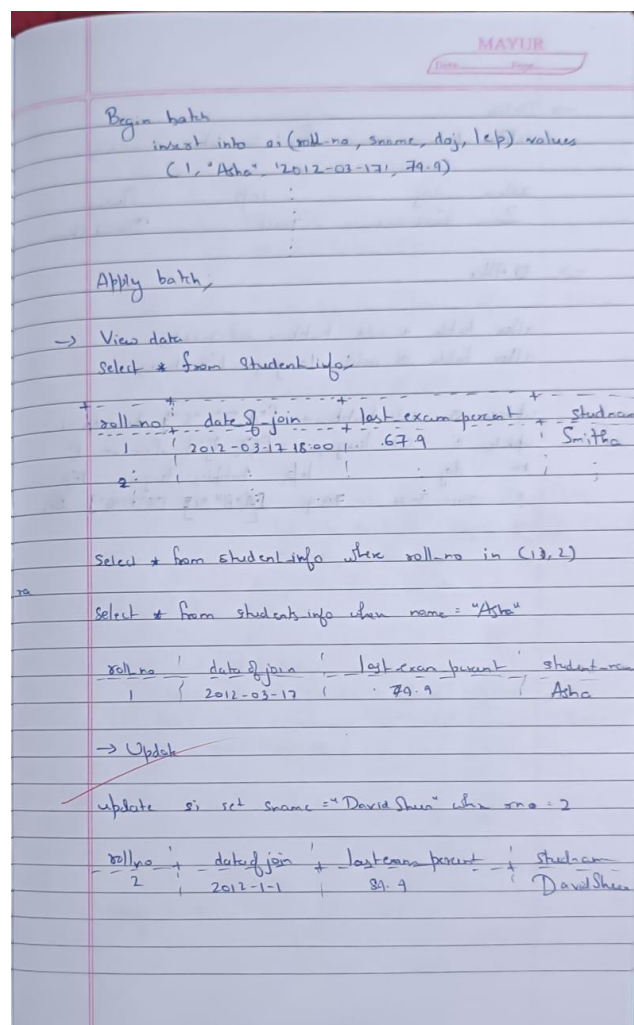 MAYUR
Date Page
Begin batch
insert into si (roll-no, sname, doj, lep) values
(1, "Asha", '2012-03-17', 79.9)
Apply batch;
→ View data
Select * from Student_info;
roll-no date of join last exam percent studnam
1 2012-03-17 18:00 67.9 Smitha
2
Select * from student_info where roll-no in (1, 2)
ra
Select * from students_info when name = "Asha"
roll no date of join last exan percent student-nam
1 2012-03-17 79.9 Asha
→ Update
update si set sname = "David Sheen" when rno = 2
roll no date of join last exam percent studnam
2 2012-1-1 89.9 David Sheen